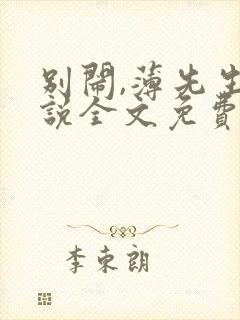 别鬧,薄先生
說全文免費
李東朗